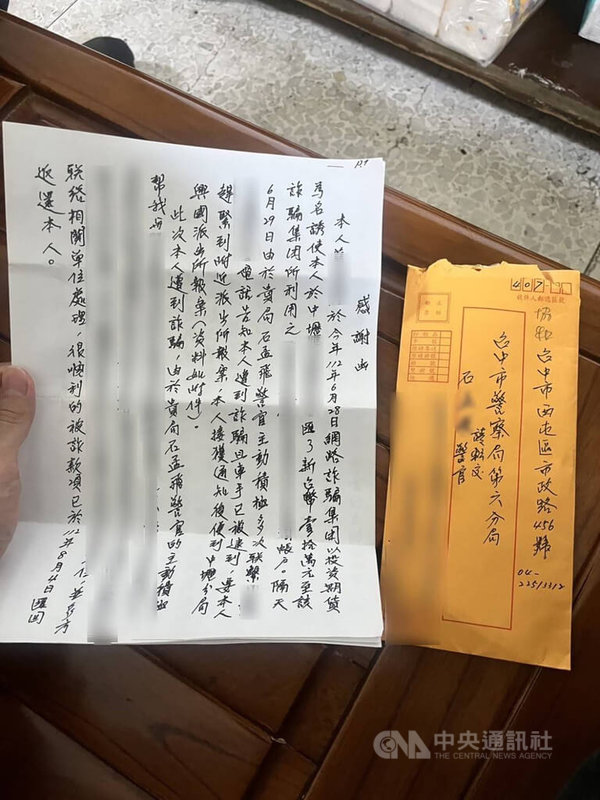 P.1
感謝函
本人 於今年112年6月28日網路詐騙集團以投資期貨
為名誘使本人於中壢 匯了新台幣壹拾萬元至該
詐騙集團所利用之 帳戶。隔天
6月29日由於貴局石孟飛警官主動積極多次聯繫
電話告知本人遭到詐騙且車手已被逮到,要本人
趕緊到附近派出所報案,本人接獲通知後便到中壢分局
興國派出所報案(資料如附件)。
此次本人遭到詐騙,由於貴局石孟飛警官的主動積極
幫我向
联絡相關單位處理,很順利的被詐款項已於112年8月4日匯回
返還本人。
407
收件人郵遞區號
台中市西屯區市政路456號
04-22513312
台中市警察局第六分局
請轉交
石 警官
CNA 中央通訊社
THE CENTRAL NEWS AGENCY